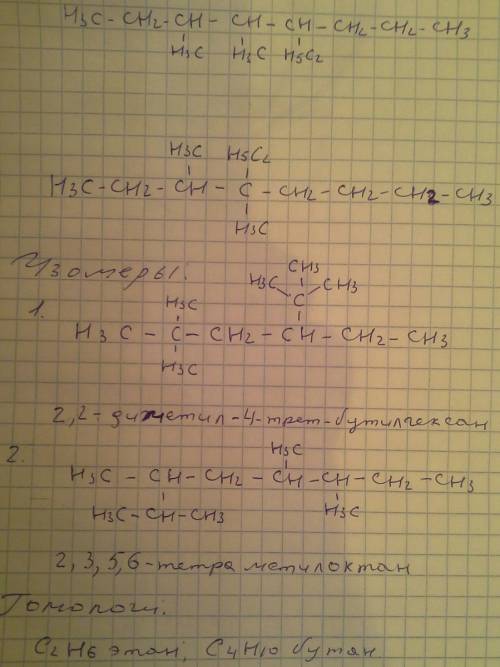 H3C - CH2 - CH - CH - CH - CH2 - CH2 - CH3
H3C H3C H5C2
H3C H5C2
H3C - CH2 - CH - C - CH2 - CH2 - CH2 - CH3
H3C
Изомеры:
CH3
H3C CH3
H3C C
1.
H3C - C - CH2 - CH - CH2 - CH3
H3C
2,2-диметил-4-трет-бутилгексан
2.
H3C
H3C - CH - CH2 - CH - CH - CH2 - CH3
H3C - CH - CH3 H3C
2,3,5,6-тетраметилоктан
Гомологи:
C2H6 этан; C4H10 бутан